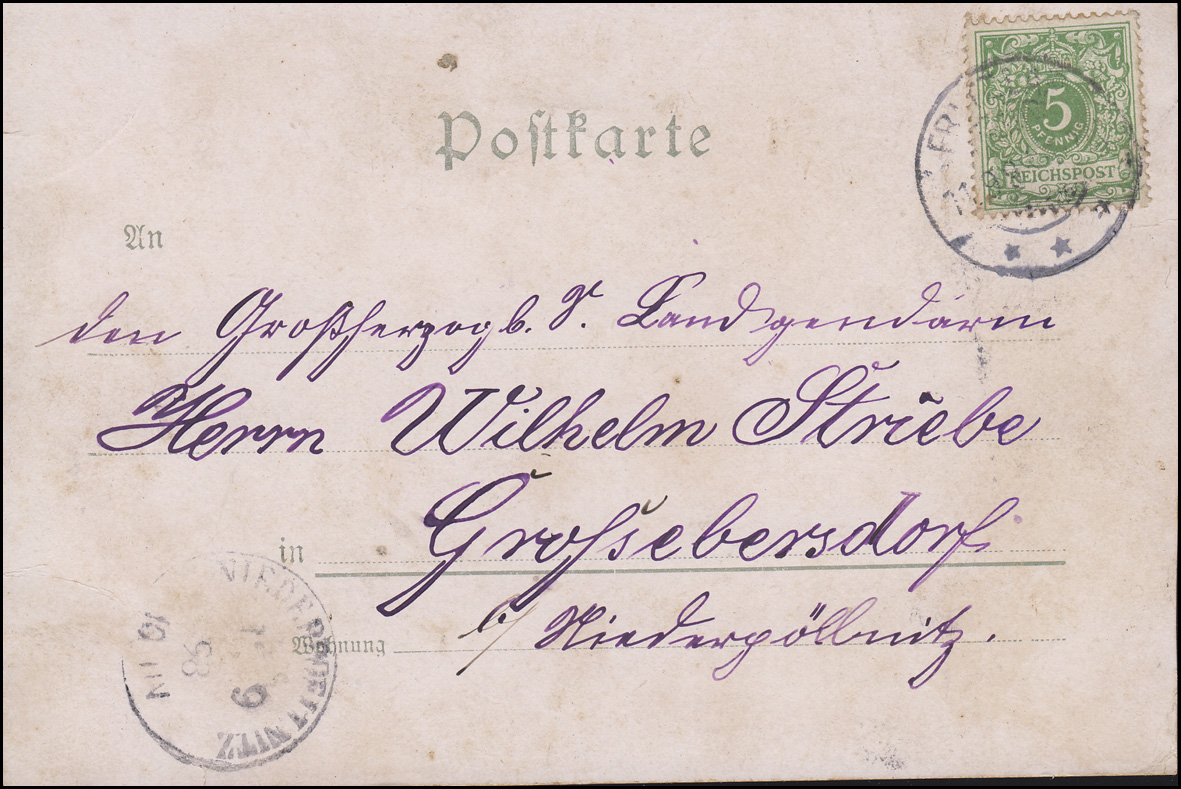 Postkarte
5
PFENNIG
REICHSPOST
An
den Großherzogl. S. Landgendarm
Herrn Wilhelm Striebe
Grossebersdorf
in
b/ Niederpöllnitz.
Wohnung
NIEDERPOELLNITZ
9
98
10 11 N